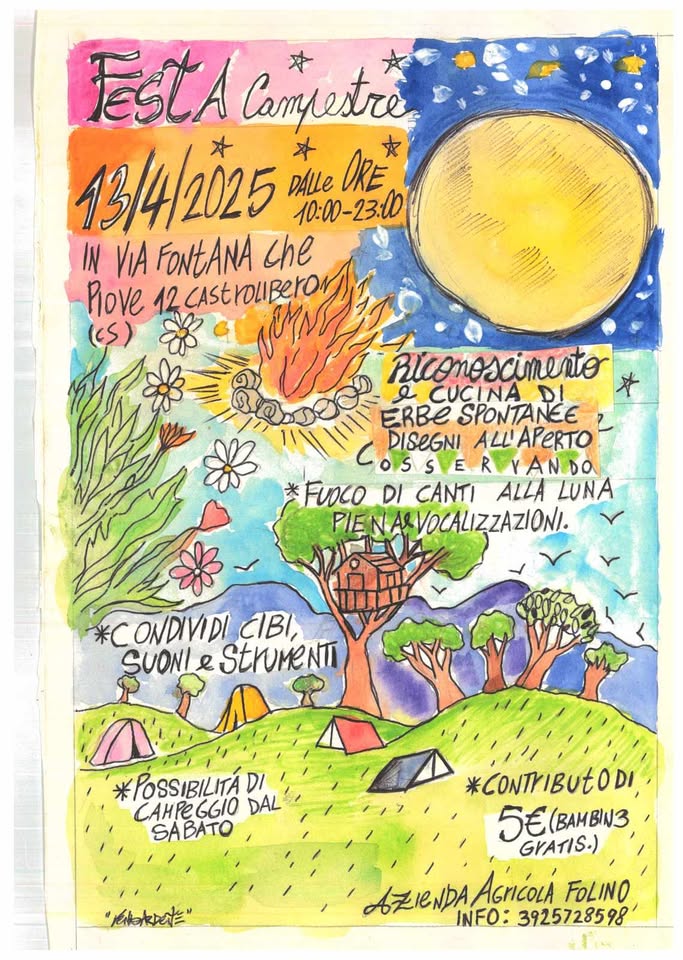 FESTA Campestre
13/4/2025 DALLE ORE
10:00-23:00
IN VIA FONTANA CHE
PIOVE 12 CASTROLIBERO
(CS)
RICONOSCIMENTO
e CUCINA DI
ERBE SPONTANEE
DISEGNI ALL'APERTO
OSSERVANDO
*FUOCO DI CANTI ALLA LUNA
PIENA e VOCALIZZAZIONI.
*CONDIVIDI CIBI,
SUONI e STRUMENTI
*POSSIBILITÁ DI
CAMPEGGIO DAL
SABATO
*CONTRIBUTO DI
5€ (BAMBIN3
GRATIS.)
AZIENDA AGRICOLA FOLINO
INFO: 3925728598